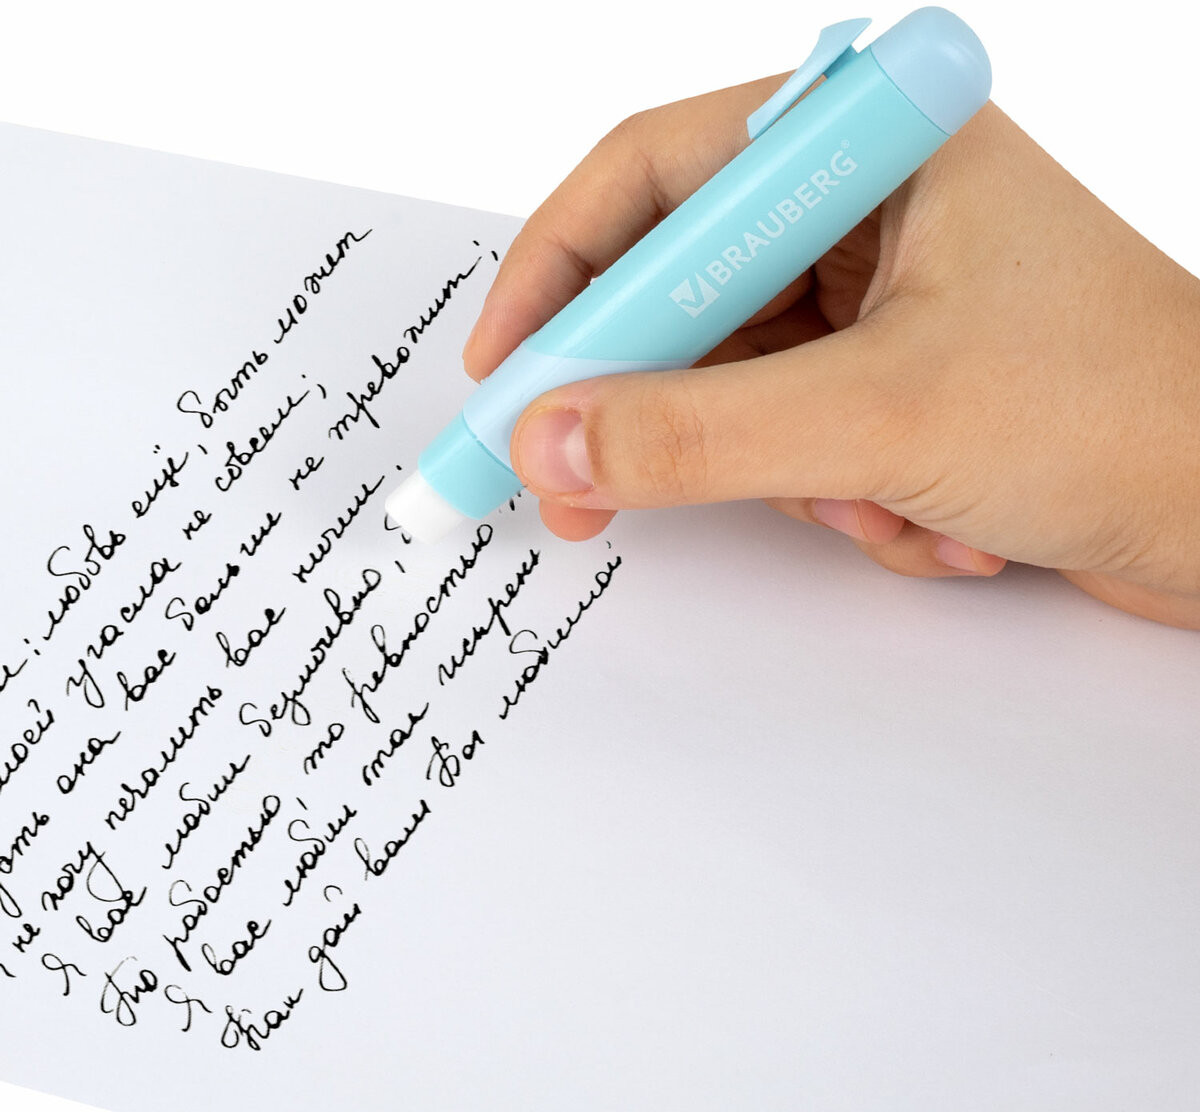 любовь ещё, быть может
моей угасла не совсем;
она вас больше не тревожит;
не хочу печалить вас ничем.
Я вас любил безмолвно,
То радостью, то ревностью
Я вас любил так искрен
Как дай вам Бог любимой
BRAUBERG®